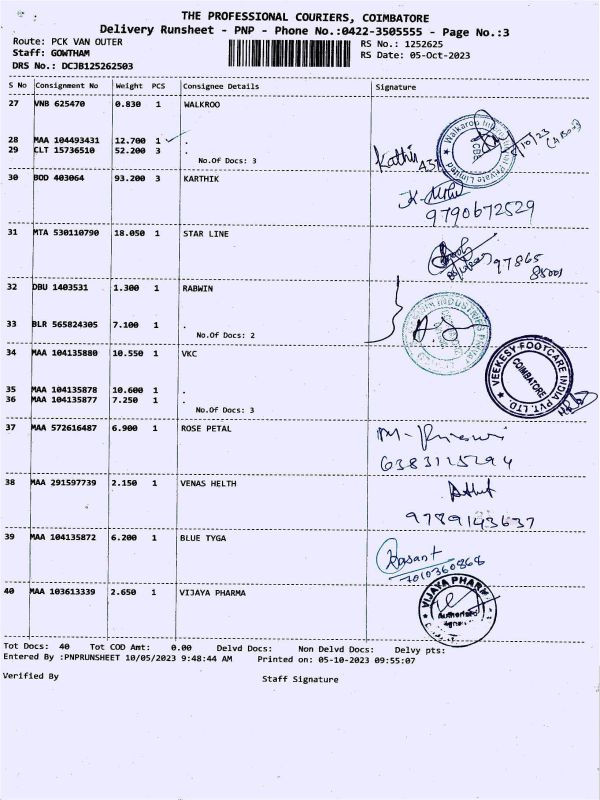 THE PROFESSIONAL COURIERS, COIMBATORE
Delivery Runsheet - PNP - Phone No.:0422-3505555 - Page No.:3
Route: PCK VAN OUTER
RS No.: 1252625
Staff: GOWTHAM
RS Date: 05-Oct-2023
DRS No.: DCJB125262503
S No Consignment No Weight PCS Consignee Details Signature
27 VNB 625470 0.830 1 WALKROO
28 MAA 104493431 12.700 1 .
29 CLT 15736510 52.200 3 .
No.Of Docs: 3
Kathir
30 BOD 403064 93.200 3 KARTHIK
9790672529
31 MTA 530110790 18.050 1 STAR LINE
97865
85001
32 DBU 1403531 1.300 1 RABWIN
33 BLR 565824305 7.100 1 .
No.Of Docs: 2
34 MAA 104135880 10.550 1 VKC
VEEKESY FOOTCARE INDIA PVT. LTD.
COIMBATORE
35 MAA 104135878 10.600 1 .
36 MAA 104135877 7.250 1 .
No.Of Docs: 3
37 MAA 572616487 6.900 1 ROSE PETAL
6383125294
38 MAA 291597739 2.150 1 VENAS HELTH
9789143637
39 MAA 104135872 6.200 1 BLUE TYGA
7010360868
40 MAA 103613339 2.650 1 VIJAYA PHARMA
VIJAYA PHARMA
Tot Docs: 40 Tot COD Amt: 0.00 Delvd Docs: Non Delvd Docs: Delvy pts:
Entered By :PNPRUNSHEET 10/05/2023 9:48:44 AM Printed on: 05-10-2023 09:55:07
Verified By Staff Signature